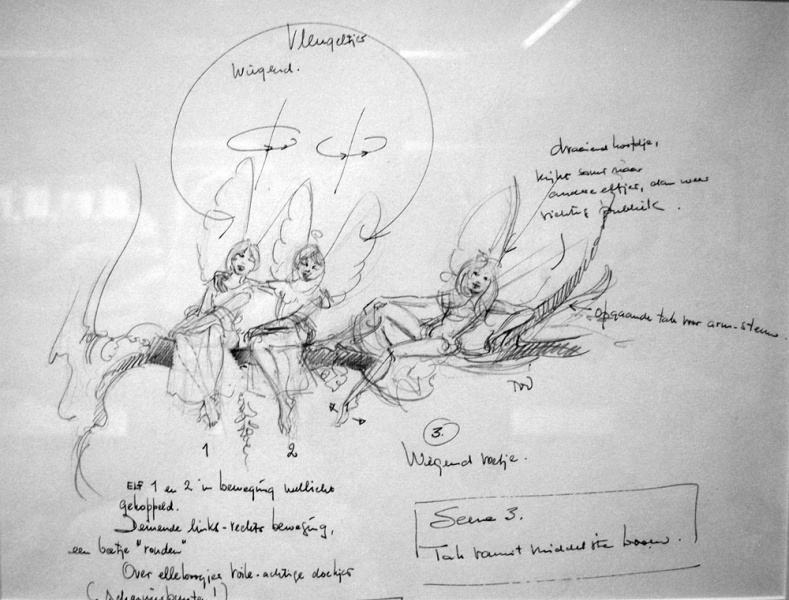 Vleugeltjes
Wiegend.
draaiend hoofdje,
kijkt soms naar
andere elfjes, dan weer
richting publiek.
opgaande tak voor arm-steun.
TON
1
2
3.
Wiegend voetje.
ELF 1 en 2 in beweging wellicht
gekoppeld.
Deinende links-rechts beweging,
een beetje "ronden"
Over elleboogjes voile-achtige doekjes
Scene 3.
Tak vanuit middelste boom.